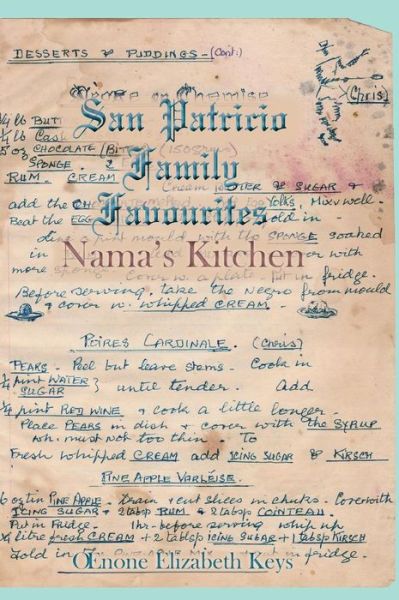 DESSERTS & PUDDINGS - (Cont:)
(Chris)
San Patricio
Family
Favourites
Nama's Kitchen
¼ lb BUTT
¼ lb Cast
5 oz CHOCOLATE (BITT (150grm
SPONGE.
RUM. CREAM
Cream BUTTER & SUGAR &
add the CH YOLKS, Mix well.
Beat the EGG fold in
Line a pint mould with the SPONGE soaked
in cover with
more sponge Cover w. a plate - Put in fridge.
Before serving, take the Negro from mould
& cover w. whipped CREAM.
POIRES CARDINALE. (Chris)
PEARS - Peel but leave stems. Cook in
¼ pint WATER } until tender. Add
SUGAR
¼ pint RED WINE & cook a little longer.
Place PEARS in dish & cover with the SYRUP
wh. must not too thin. To
Fresh whipped CREAM add ICING SUGAR & KIRSCH
PINE APPLE VARLÉISE.
6 oz tin PINE APPLE - Drain & cut slices in chunks. Cover with
ICING SUGAR + 2 tabsp RUM & 2 tabsp COINTEAU.
Put in Fridge. 1hr. before serving whip up
¼ litre fresh CREAM + 2 tablsp icing SUGAR + 1 tabsp KIRSCH
Fold in put in fridge.
OEnone Elizabeth Keys